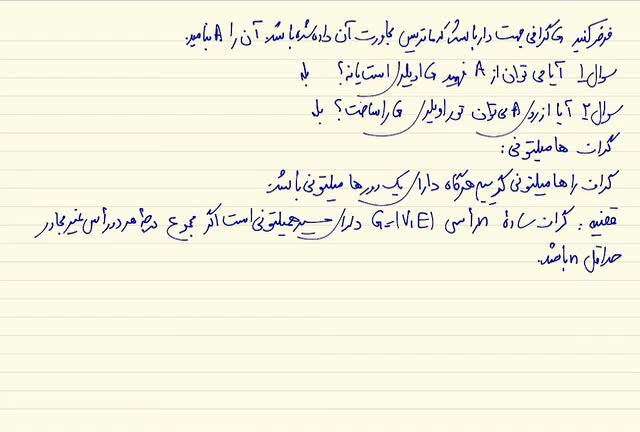 فرض کنید G گرافی جهت دار باشد که ماتریس مجاورت آن داده شده باشد. آن را A بنامید.
سوال ۱ آیا می توان از A فهمید G اویلری است یا نه؟ بله
سوال ۲ آیا از روی A می توان تور اویلری G را ساخت؟ بله
گراف هامیلتونی :
گراف را هامیلتونی گوییم هرگاه دارای یک دور هامیلتونی باشد.
قضیه : گراف ساده n رأسی G=(V,E) دارای مسیر همیلتونی است اگر مجموع درجهٔ هر دو رأس غیر مجاور
حداقل n باشد.